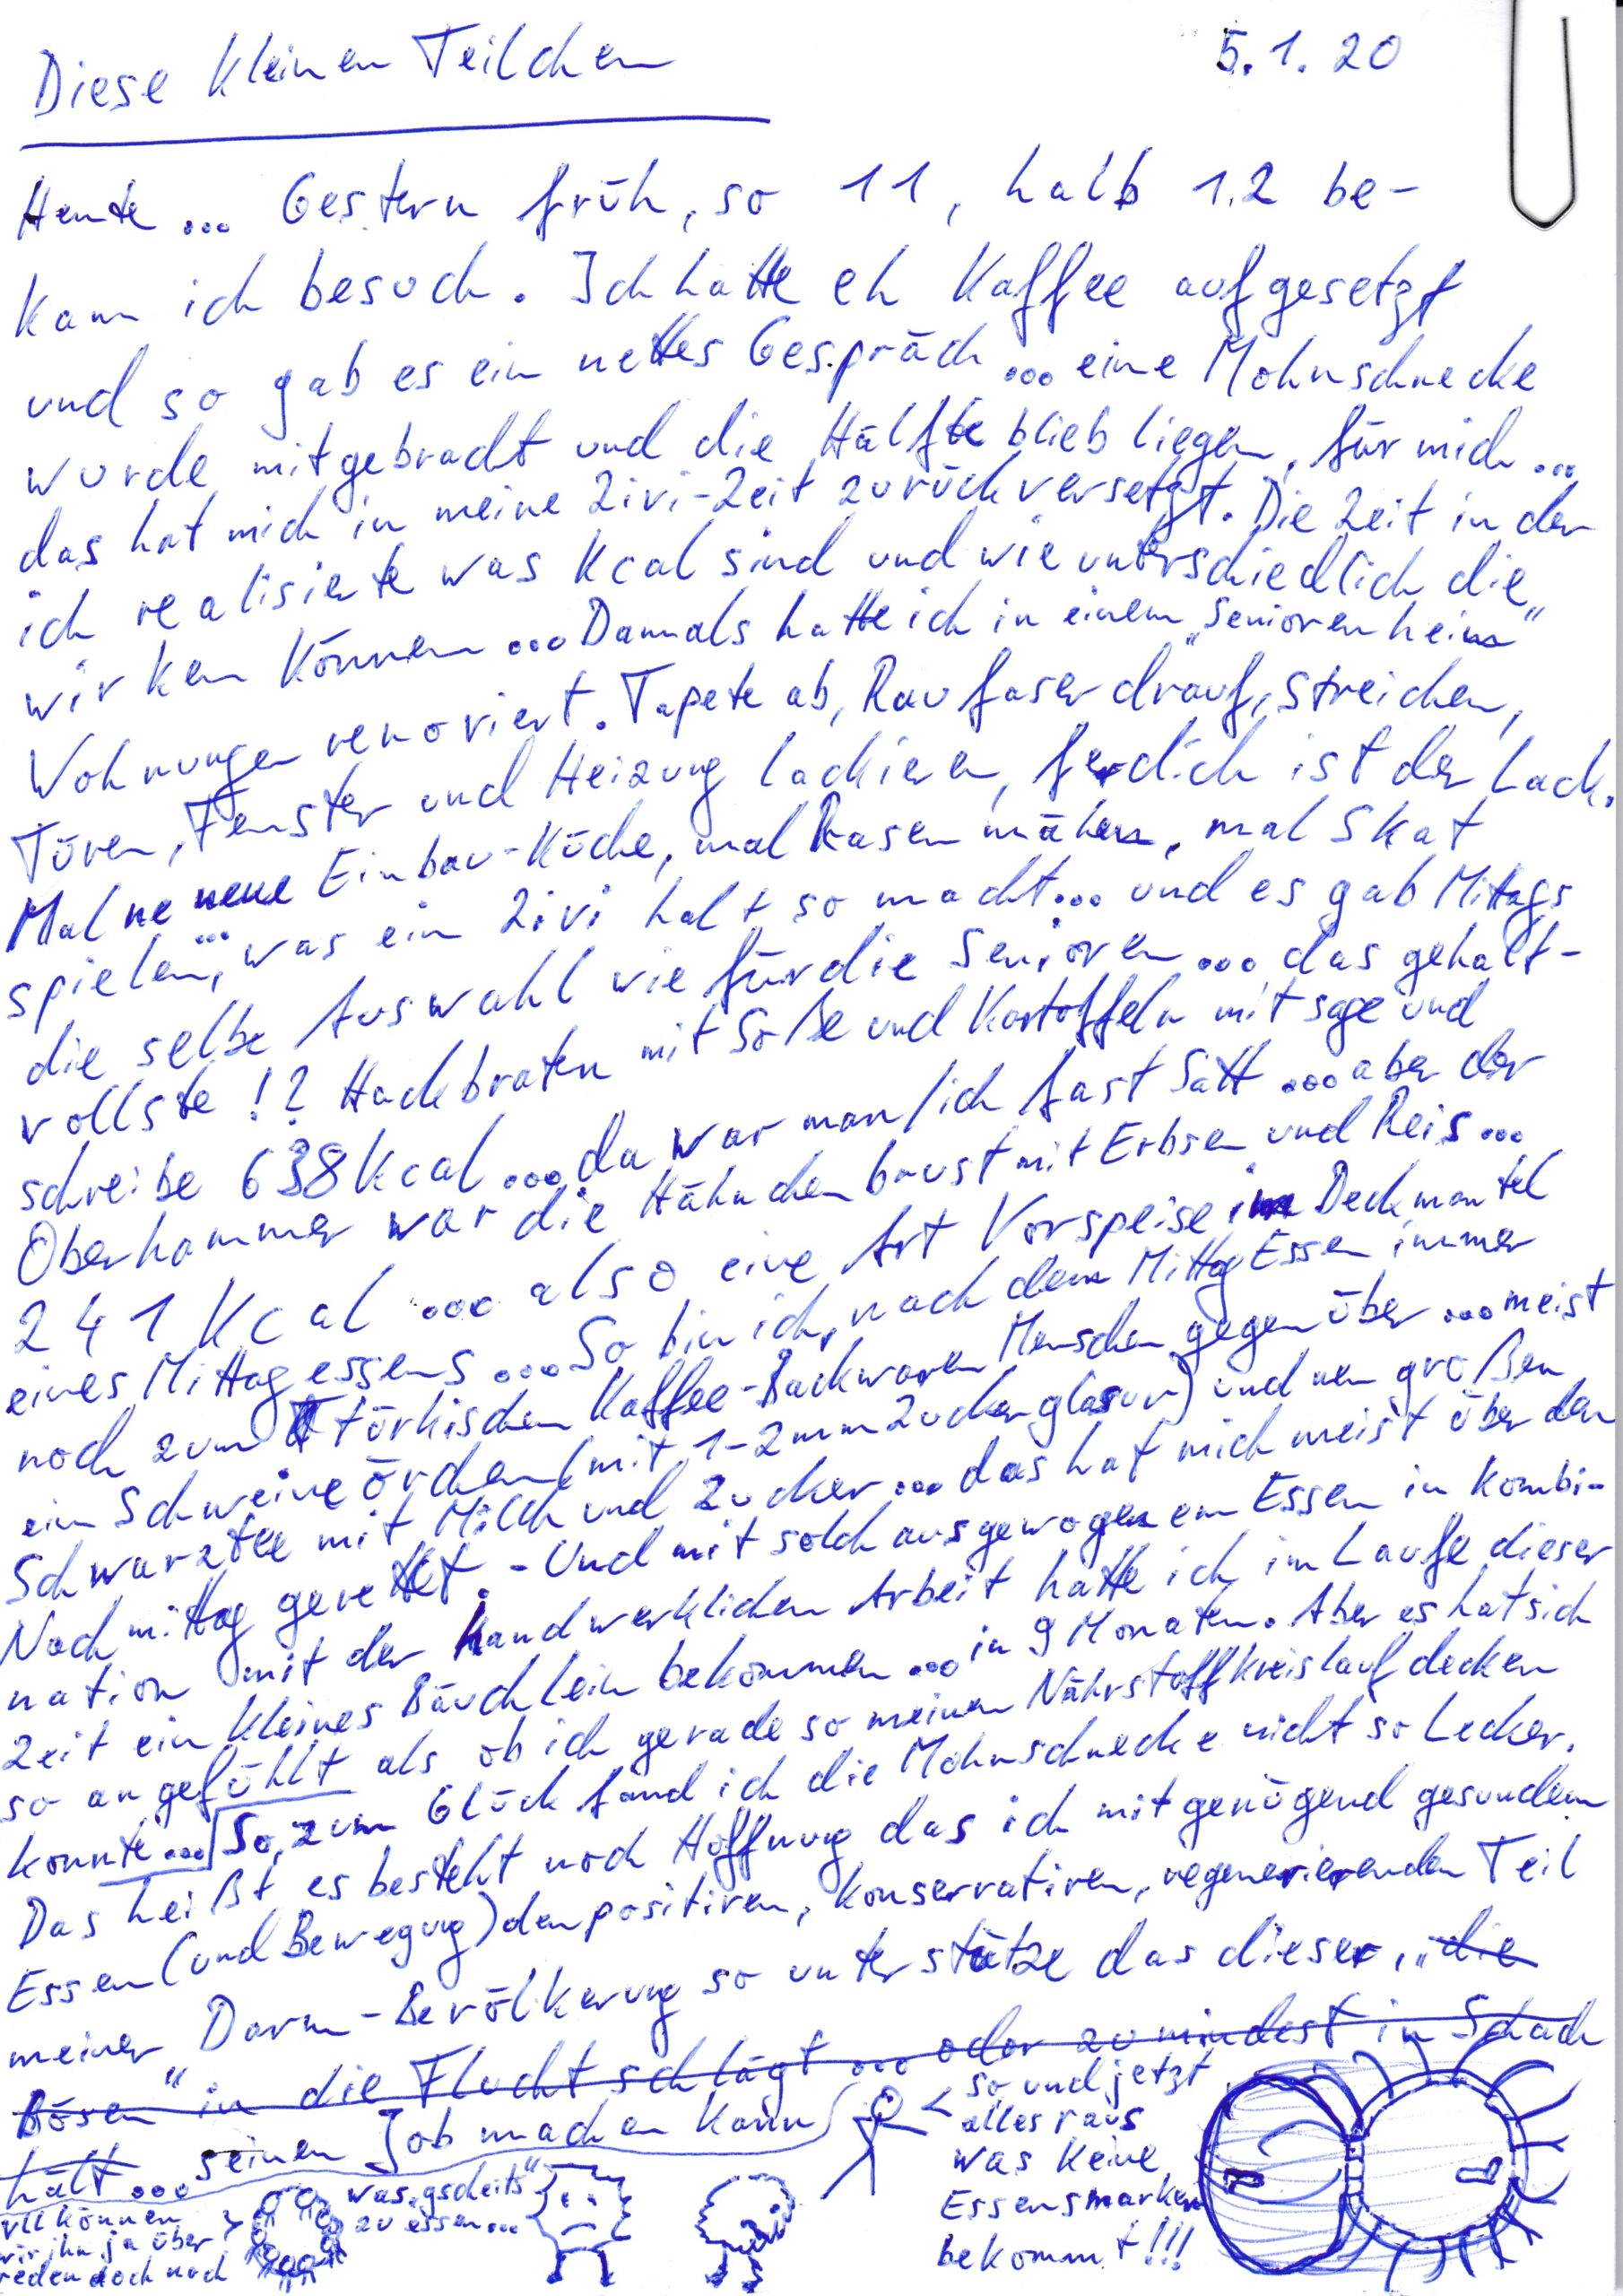 Diese kleinen Teilchen
5.1.20
Heute ... Gestern früh, so 11, halb 12 be-
kam ich besuch. Ich hatte eh Kaffee aufgesetzt
und so gab es ein nettes Gespräch ... eine Mohnschnecke
wurde mitgebracht und die Hälfte blieb liegen, für mich ...
das hat mich in meine Zivi-Zeit zurück versetzt. Die Zeit in der
ich realisierte was Kcal sind und wie unterschiedlich die
wirken können ... Damals hatte ich in einem „Seniorenheim“
Wohnungen renoviert. Tapete ab, Raufaser drauf, streichen,
Türen, Fenster und Heizung lackieren, ferdich ist der Lack.
Mal ne neue Einbau-Küche, mal Rasen mähen, mal Skat
spielen, ... was ein Zivi halt so macht ... und es gab Mittags
die selbe Auswahl wie für die Senioren ... das gehalt-
vollste !? Hackbraten mit Soße und Kartoffeln mit sage und
schreibe 638 Kcal ... da war man/ich fast satt ... aber der
Oberhammer war die Hähnchenbrust mit Erbsen und Reis ...
241 Kcal ... also eine Art Vorspeise im Deckmantel
eines Mittagessens ... So bin ich, nach dem Mittag Essen immer
noch zum türkischen Kaffee-Backwaren Menschen gegenüber ... meist
ein Schweineörchen (mit 1-2mm Zuckerglasur) und nen großen
Schwarztee mit Milch und Zucker ... das hat mich meist über den
Nachmittag gerettet. - Und mit solch ausgewogenem Essen in Kombi-
nation mit der handwerklichen Arbeit hatte ich im Laufe dieser
Zeit ein kleines Bäuchlein bekommen ... in 9 Monaten. Aber es hat sich
so angefühlt als ob ich gerade so meinen Nährstoffkreislauf decken
konnte ... So, zum Glück fand ich die Mohnschnecke nicht so Lecker.
Das heißt es besteht noch Hoffnung das ich mit genügend gesundem
Essen (und Bewegung) den positiven, konservativen, regenerierenden Teil
meiner Darm-Bevölkerung so unterstütze das dieser, „die
Bösen“ in die Flucht schlägt ... oder zumindest in Schach
hält ... seinen Job machen kann
so und jetzt
alles raus
was keine
Essensmarken
bekommt!!!
was „gscheits“
zu essen ...
können
wir ihn ja über
reden doch noch